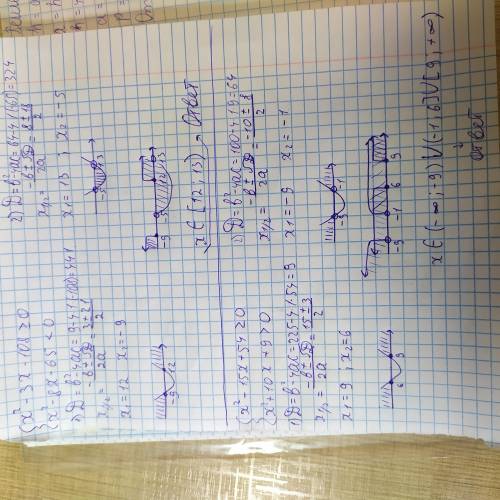 {x² - 3x - 108 ≥ 0
{x² - 8x - 65 < 0
1) D = b² - 4ac = 9 - 4·1·(-108) = 441
x₁/₂ = (-b ± √D)/2a = (3 ± 21)/2
x₁ = 12 x₂ = -9
-9 12
2) D = b² - 4ac = 64 - 4·1·(-65) = 324
x₁/₂ = (-b ± √D)/2a = (8 ± 18)/2
x₁ = 13 ; x₂ = -5
-5 13
-9 -5 12 13
x ∈ [12; 13) → Ответ
{x² - 15x + 54 ≥ 0
{x² + 10x + 9 > 0
1) D = b² - 4ac = 225 - 4·1·54 = 9
x₁/₂ = (-b ± √D)/2a = (15 ± 3)/2
x₁ = 9 ; x₂ = 6
6 9
2) D = b² - 4ac = 100 - 4·1·9 = 64
x₁/₂ = (-b ± √D)/2a = (-10 ± 8)/2
x₁ = -9 x₂ = -1
-9 -1
-9 -1 6 9
x ∈ (-∞; -9) ∪ (-1; 6] ∪ [9; +∞)
↓
Ответ